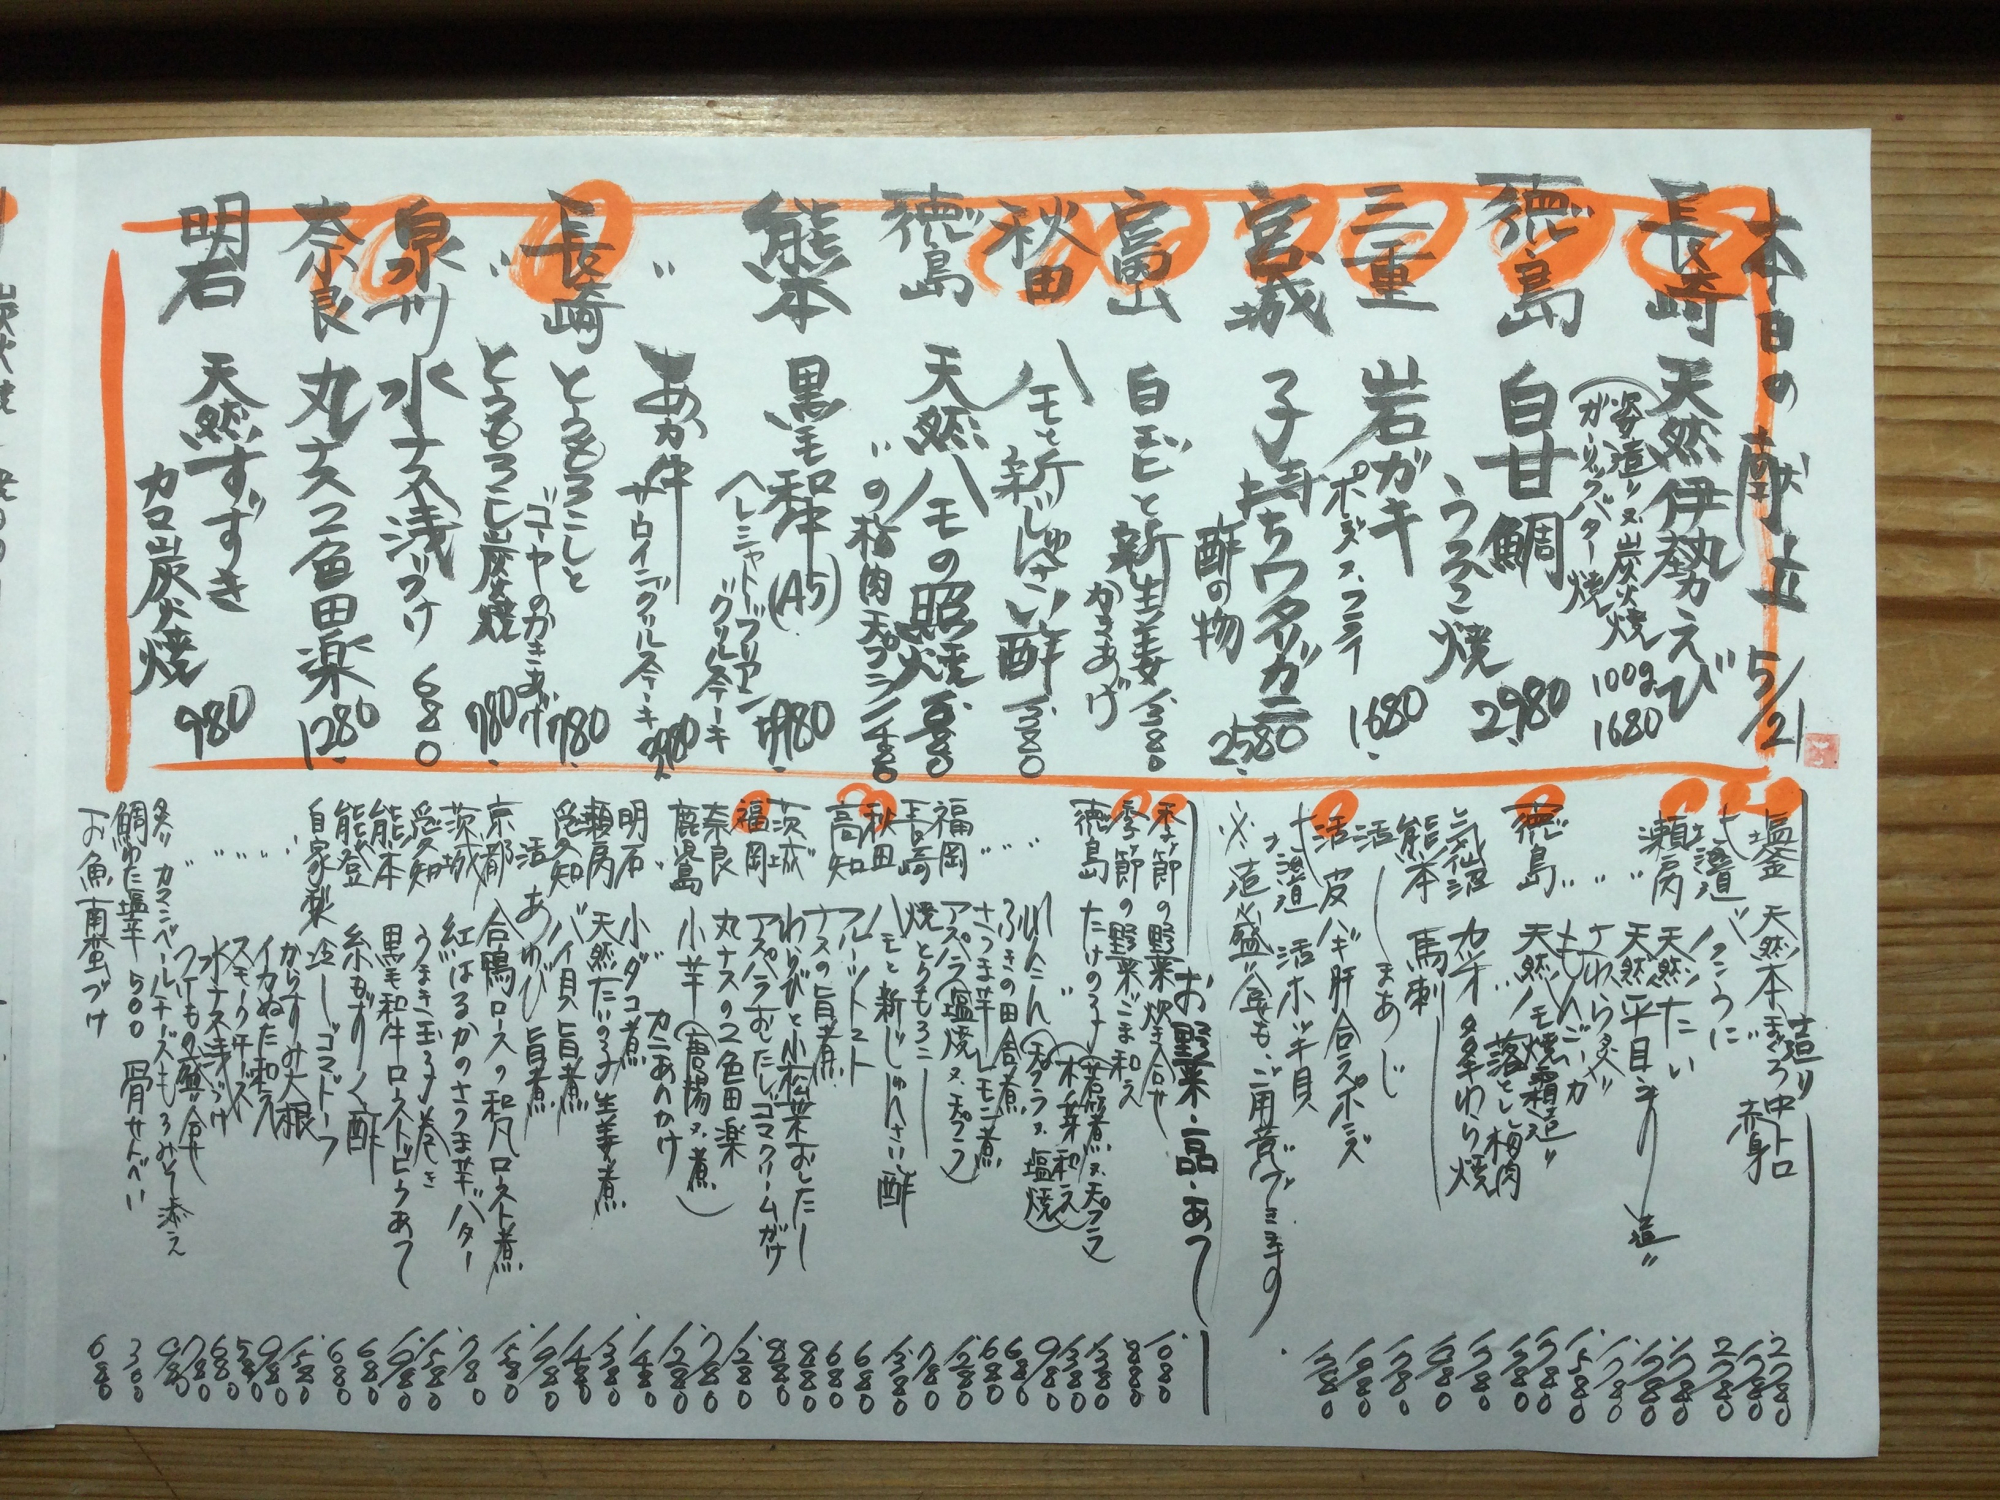 本日の献立 5/21
長崎 天然伊勢えび
(姿造り又炭火焼 100g
ガーリックバター焼 1680
徳島 白甘鯛 2,980
うろこ焼
三重 岩ガキ 1,680
ポン酢又フライ
宮城 子持ちワタリガニ 2,580
酢の物
富山 白エビと新生姜 1380
かきあげ
秋田 ハモと新じゅんさい酢 1380
徳島 天然ハモの照焼
〃の梅肉天プラ 1480
熊本 黒毛和牛(A5)
ヘレシャトーブリアン
グリル
〃 あか牛
サーロイングリルステーキ
長崎 とうもろこしと 780
ゴーヤのかきあげ
〃 とうもろこし炭火焼 780
泉州 水ナス浅づけ 680
奈良 丸ナス2色田楽 1,280
明石 天然すずき 980
カマ炭火焼
造り
塩釜 天然本まぐろ 中トロ 2780
赤身 1780
北海道 うに 2780
瀬戸内 天然たい 1780
〃 天然平目 造り 1780
〃 さわら炙り 1780
〃 もんごいか 1580
徳島 天然ハモ焼霜造り 1780
落とし梅肉 1380
気仙沼 カツオ わら焼 1780
熊本 馬刺 1980
活 しまあじ 1780
活 皮ハギ肝合え ポン酢 1980
北海道 活ホッキ貝 1780
※造り盛り合せも、ご用意できます。
お野菜・一品・あて
季節の野菜炊き合せ 1080
季節の野菜ごま和え 880
徳島 たけのこ(若竹煮又天プラ) 1380
〃 (木の芽和え) 1380
〃 れんこん(天プラ又塩焼) 980
〃 ふきの田舎煮 680
〃 さつま芋レモン煮 680
福岡 アスパラ(塩焼又天プラ) 1280
長崎 焼とうもろこし 780
秋田 ハモと新じゅんさい酢 1380
フルーツトマト 680
高知 ナスの旨煮 680
茨城 わらびと小松菜おひたし 880
福岡 アスパラおひたしゴマクリームがけ 880
奈良 丸ナスの2色田楽 1280
鹿児島 小芋(唐揚又煮) 780
〃 カニあんかけ 1280
明石 小ダコ煮 1480
瀬戸内 天然たいの子生姜煮 1380
愛知 バイ貝旨煮 1480
活あわび旨煮 1980
京都 合鴨ロースの和風ロースト煮 1580
茨城 紅はるかのさつま芋バター 780
愛知 うまき玉子巻き 1580
熊本 黒毛和牛ローストビーフあて 1980
能登 糸もずく酢 680
自家製 蒸しゴマドーフ 680
〃 からすみ大根 1580
〃 イカぬた和え 980
〃 スモークチーズ 580
〃 水ナス浅づけ 680
〃 つけもの盛り合せ 780
炙りカマンベールチーズもろみそ添え 980
鯛わた塩辛 500 骨せんべい 300
お魚南蛮づけ 680